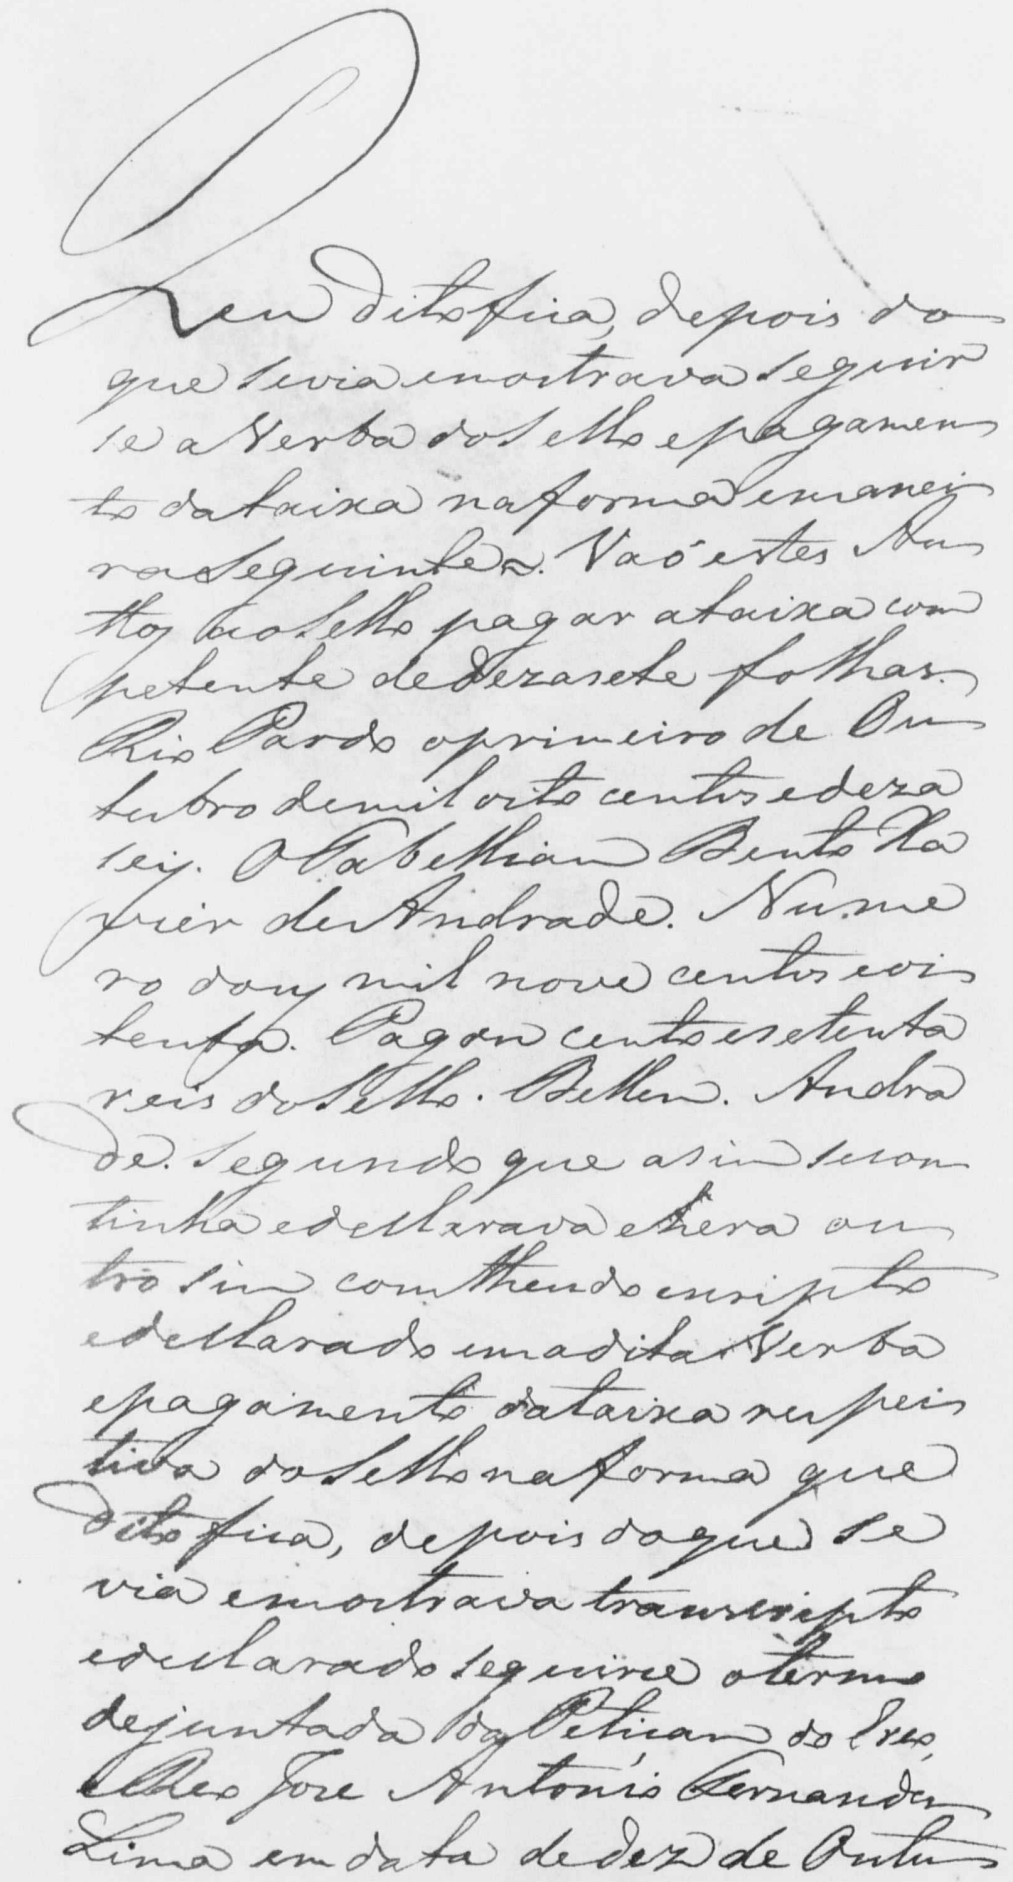 Que dito fica, depois do
que se via e mostrava seguir
se a Verba do Sello e pagamen
to da taixa na forma e manei
ra seguinte. Vaó estes Au
thos ao Sello pagar a taixa com
petente de dezasete folhas.
Rio Pardo o primeiro de Ou
tubro de mil oito centos e deza
seis. O Tabelliam Bento Xa
vier de Andrade. Nume
ro dous mil nove centos e oi
tenta. Pagou cento e setenta
reis do Sello. Bellem. Andra
de. Segundo que asim se con
tinha e declarava e hera ou
tro sim comthendo escripto
e declarado em a dita Verba
e pagamento da taixa respei
tiva do Sello na forma que
dito fica, depois do que se
via e mostrava transcripto
e declarado seguirse o termo
de juntada da Petiçam do
Reo Joze Antonio Fernandes
Lima em data de dez de Outu